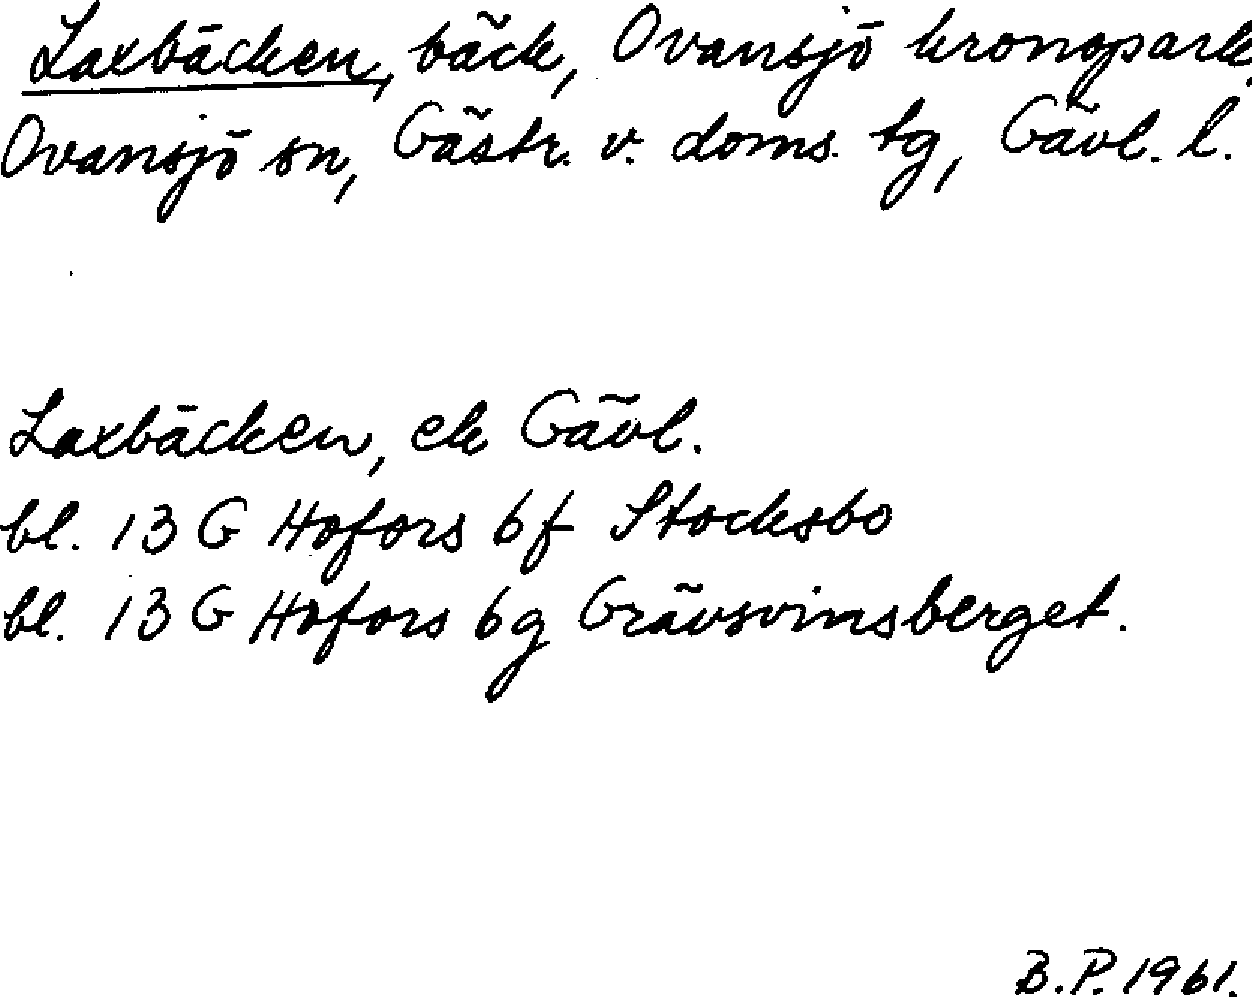 Laxbäcken, bäck, Ovansjö kronopark,
Ovansjö sn, Gästr. v. doms. tg, Gävl. l.
Laxbäcken, ek Gävl.
bl. 13 G Hofors 6f Stocksbo
bl. 13 G Hofors 6g Grävsvinsberget.
B.P. 1961.